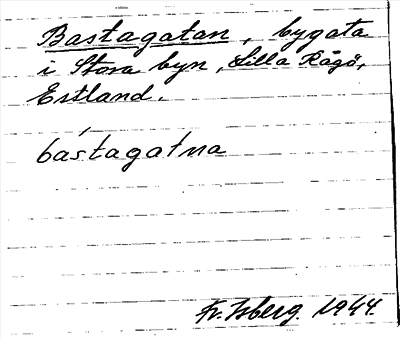 Bastagatan, bygata
i Stora byn, Lilla Rågö,
Estland.
bástagatna
Fr. Isberg. 1944.